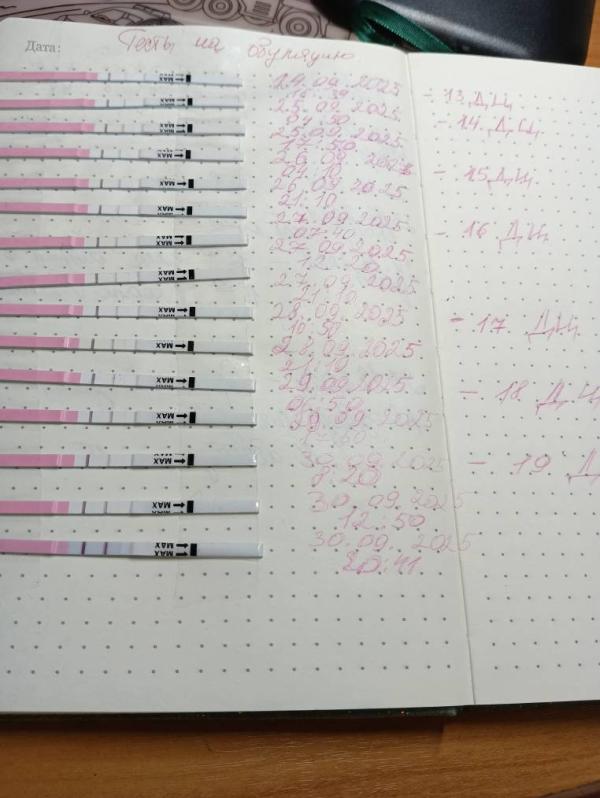 Дата:
Тесты на овуляцию
MAX
MAX
MAX
MAX
MAX
MAX
MAX
MAX
MAX
MAX
MAX
MAX
MAX
MAX
MAX
24.09.2025
- 13 ДЦ
25.09.2025
- 14 ДЦ
25.09.2025
17:50
26.09.2025
- 15 ДЦ
26.09.2025
21:10
27.09.2025
- 16 ДЦ
07:40
27.09.2025
12:20
27.09.2025
21:10
28.09.2025
- 17. ДЦ
10:50
28.09.2025
21:10
29.09.2025
- 18 ДЦ
29.09.2025
30.09.2025
- 19 Д
8:20
30.09.2025
12:50
30.09.2025
20:41